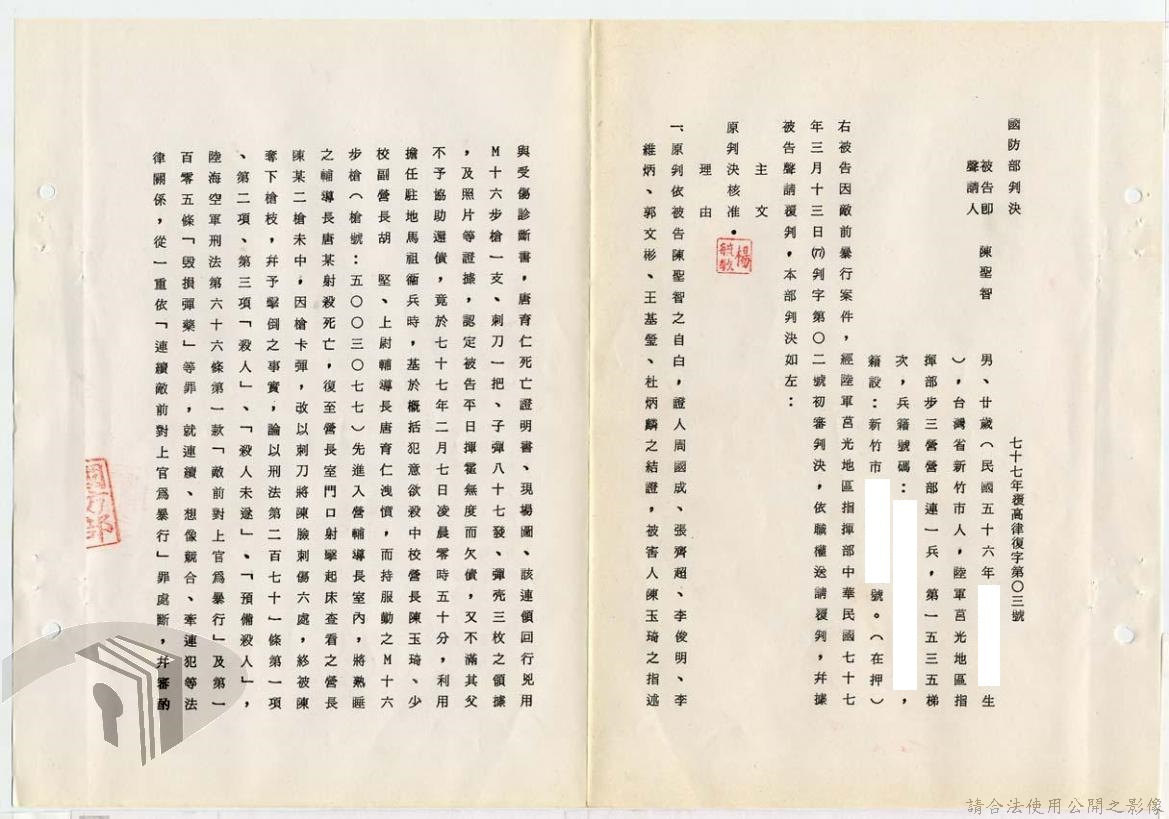 國防部判決
七十七年覆高律復字第〇三號
被告即
聲請人　陳聖智
男、廿歲（民國五十六年　生
），台灣省新竹市人，陸軍莒光地區指
揮部步三營營部連一兵，第一五三五梯
次，兵籍號碼：　，
籍設：新竹市　號。（在押）
右被告因敵前暴行案件，經陸軍莒光地區指揮部中華民國七十七
年三月十三日(77)判字第〇二號初審判決，依職權送請覆判，幷據
被告聲請覆判，本部判決如左：
主文
原判決核准。
楊
理由
一、原判依被告陳聖智之自白，證人周國成、張齊超、李俊明、李
維炳、郭文彬、王基瑩、杜炳麟之結證，被害人陳玉琦之指述
與受傷診斷書，唐育仁死亡證明書、現場圖、該連領回行兇用
M十六步槍一支、刺刀一把、子彈八十七發、彈壳三枚之領據
，及照片等證據，認定被告平日揮霍無度而欠債，又不滿其父
不予協助還債，竟於七十七年二月七日凌晨零時五十分，利用
擔任駐地馬祖衞兵時，基於概括犯意欲殺中校營長陳玉琦、少
校副營長胡　堅、上尉輔導長唐育仁洩憤，而持服勤之M十六
步槍（槍號：五〇〇三〇七七）先進入營輔導長室內，將熟睡
之輔導長唐某射殺死亡，復至營長室門口射擊起床查看之營長
陳某二槍未中，因槍卡彈，改以刺刀將陳臉刺傷六處，終被陳
奪下槍枝，幷予擊倒之事實，論以刑法第二百七十一條第一項
、第二項、第三項「殺人」、「殺人未遂」、「預備殺人」，
陸海空軍刑法第六十六條第一款「敵前對上官爲暴行」及第一
百零五條「毀損彈藥」等罪，就連續、想像競合、牽連犯等法
律關係，從一重依「連續敵前對上官爲暴行」罪處斷，幷審酌
國防部
請合法使用公開之影像